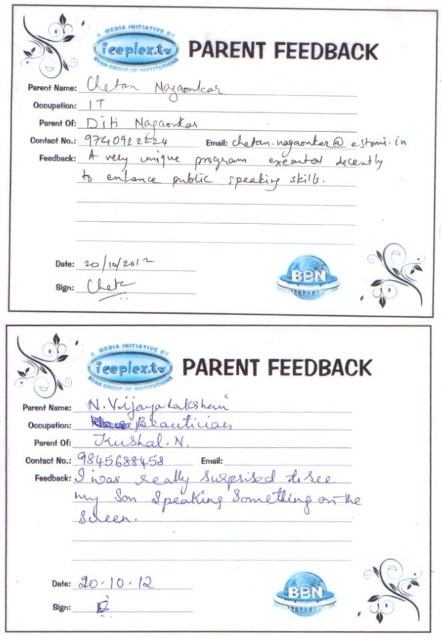 A MEDIA INITIATIVE BY
iceplex.tv
RYAN GROUP OF INSTITUTIONS
PARENT FEEDBACK
Parent Name: Chetan Nagaonkar
Occupation: IT
Parent Of: Diti Nagaonkar
Contact No.: 9740922224 Email: chetan.nagaonkar@ in
Feedback: A very unique program executed decently
to enhance public speaking skills.
Date: 20/10/2012
Sign: Cheta
BBN
A MEDIA INITIATIVE BY
iceplex.tv
RYAN GROUP OF INSTITUTIONS
PARENT FEEDBACK
Parent Name: N. Vijayalakshmi
Occupation: Beautician
Parent Of: Kushal. N.
Contact No.: 9845688458 Email:
Feedback: I was really surprised to see
my Son Speaking Something on the
Screen.
Date: 20.10.12
Sign:
BBN